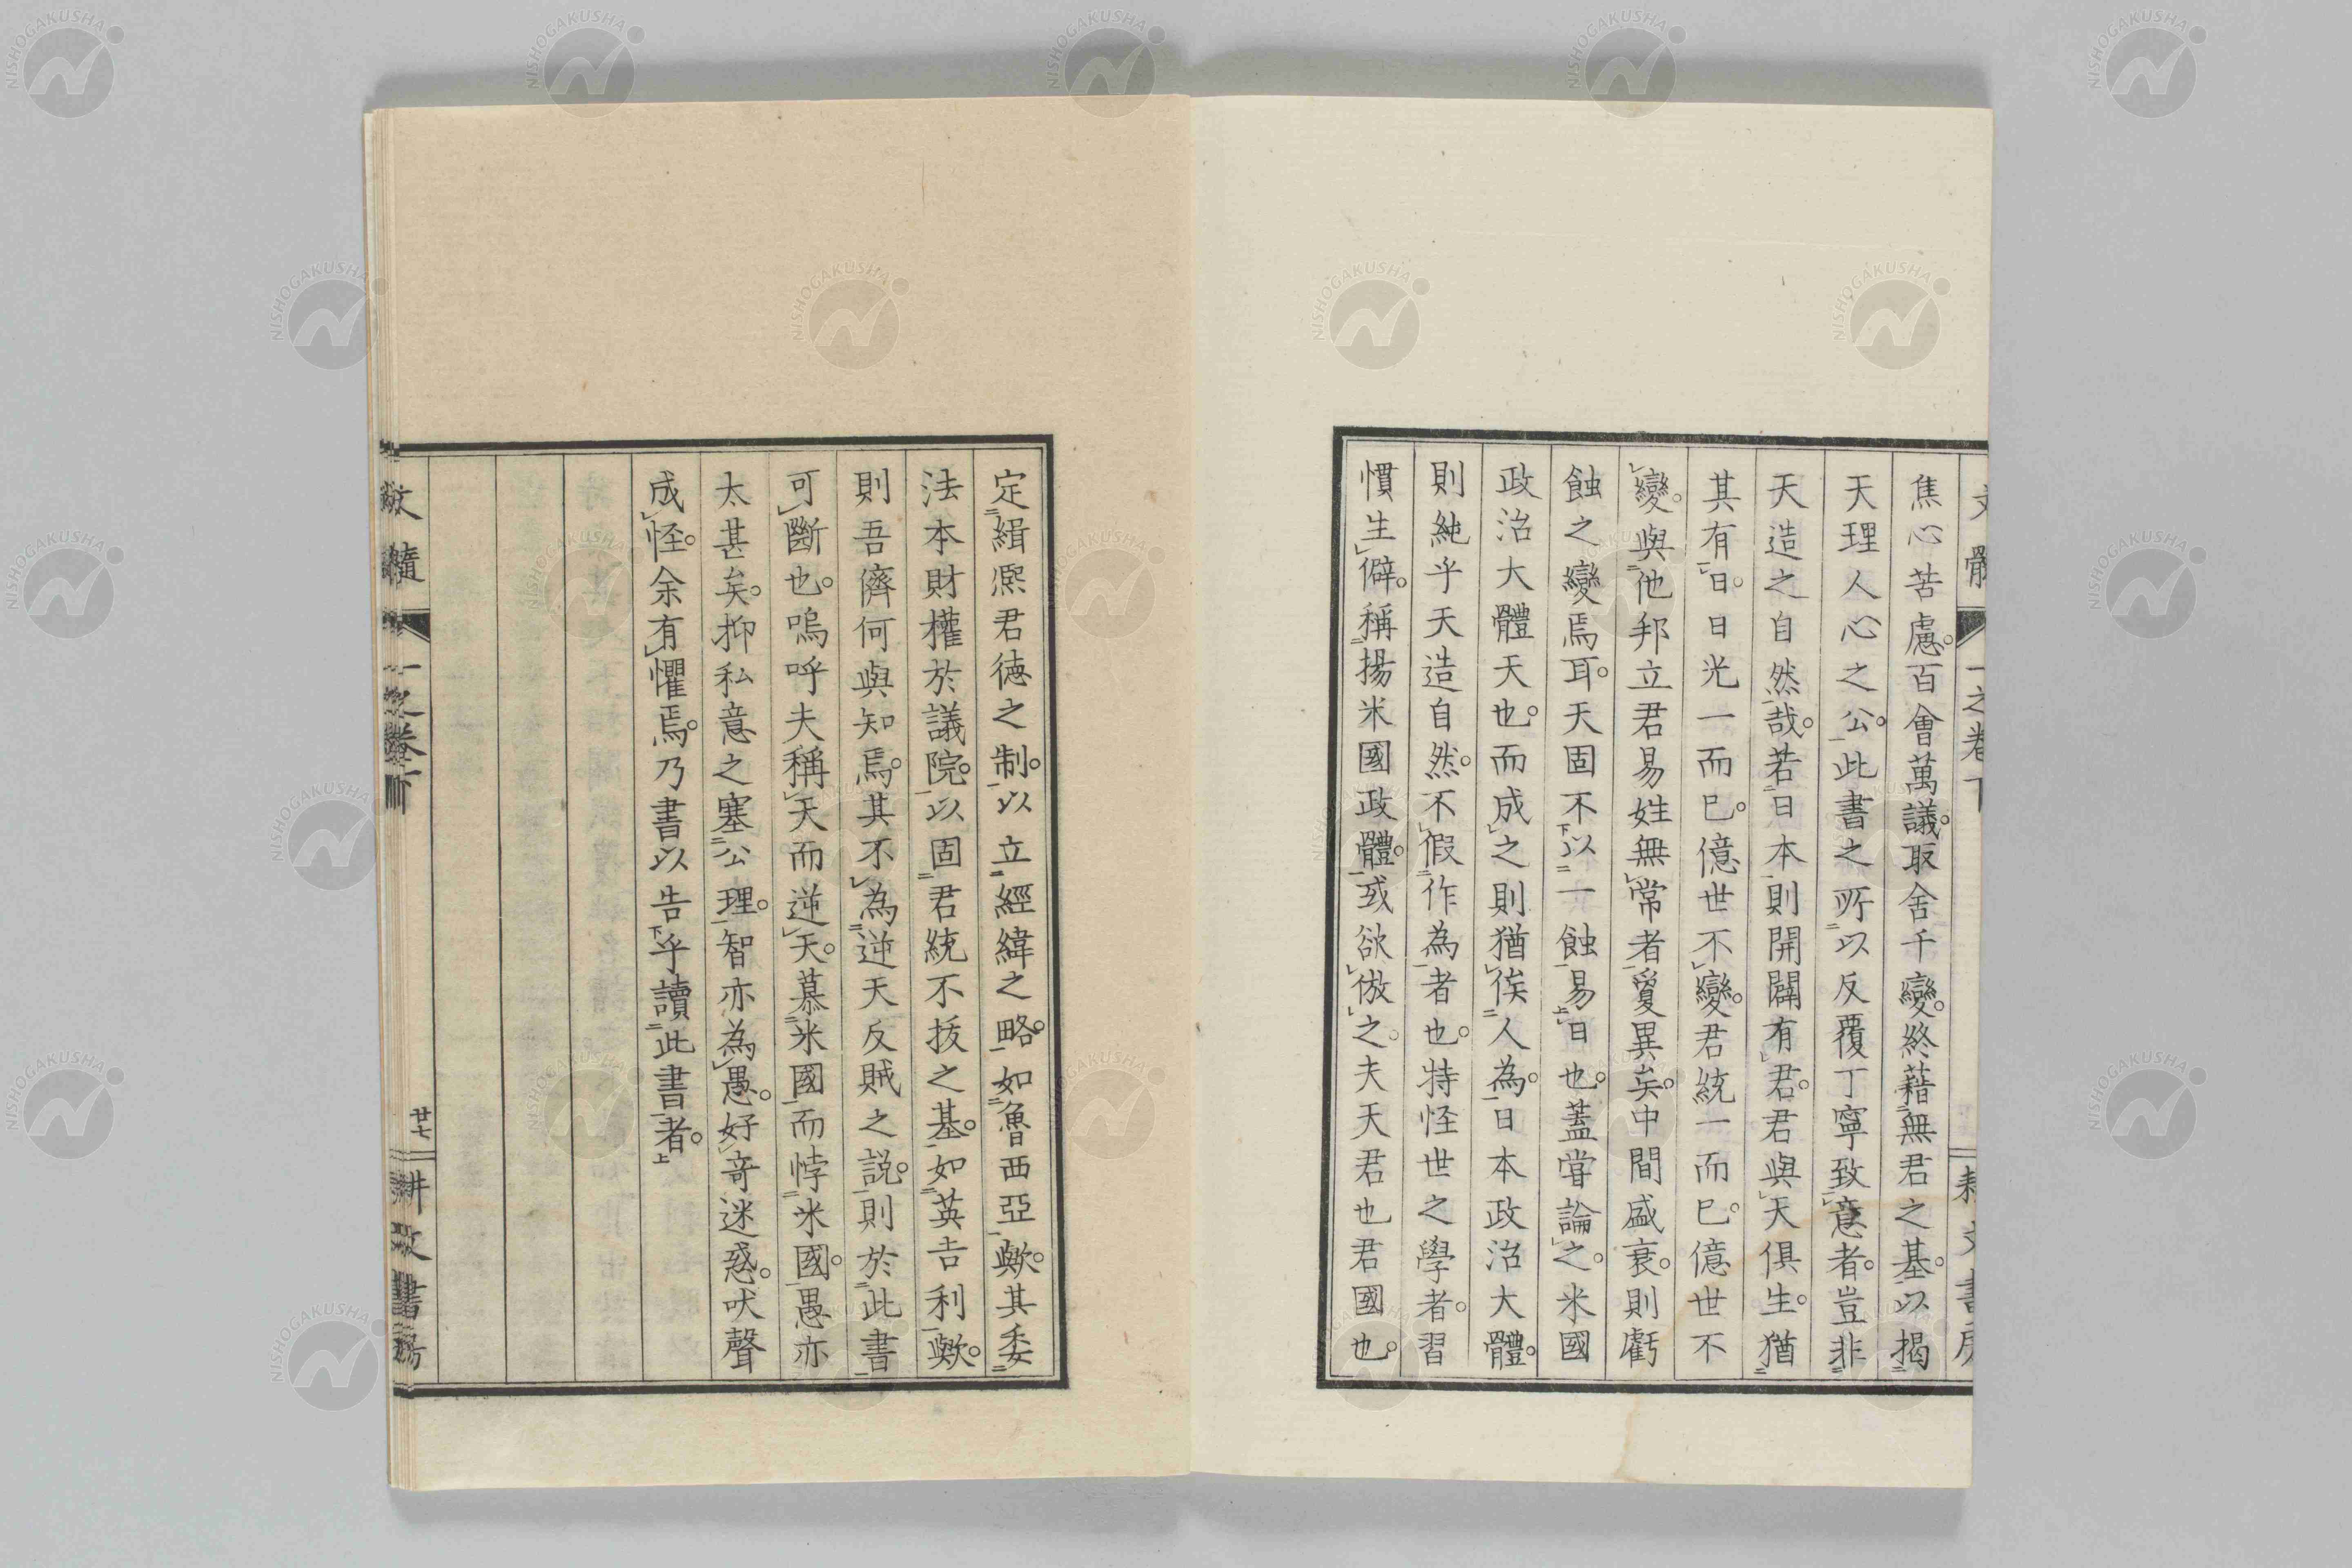 焦心苦慮。百會萬議。取舍千變。終藉無君之基。以揭
天理人心之公。此書之所以反覆丁寧致意者。豈非
天造之自然哉。若日本則開闢有君。君與天俱生。猶
其有日。日光一而已。億世不變。君統一而已。億世不
變。與他邦立君易姓無常者夐異矣。中間盛衰。則虧
蝕之變焉耳。天固不以一蝕易日也。蓋嘗論之。米國
政治大體天也。而成之則猶俟人為。日本政治大體。
則純乎天造自然。不假作為者也。特怪世之學者。習
慣生僻。稱揚米國政體。或欲倣之。夫天君也君國也。
定緝熙君德之制。以立經緯之略。如魯西亞歟。其委
法本財權於議院。以固君統不拔之基。如英吉利歟。
則吾儕何與知焉。其不為逆天反賊之説。則於此書
可斷也。嗚呼夫稱天而逆天。慕米國而悖米國。愚亦
太甚矣。抑私意之塞公理。智亦為愚。好奇迷惑。吠聲
成怪。余有懼焉。乃書以告乎讀此書者。
一之卷下
廿七
耕文書房